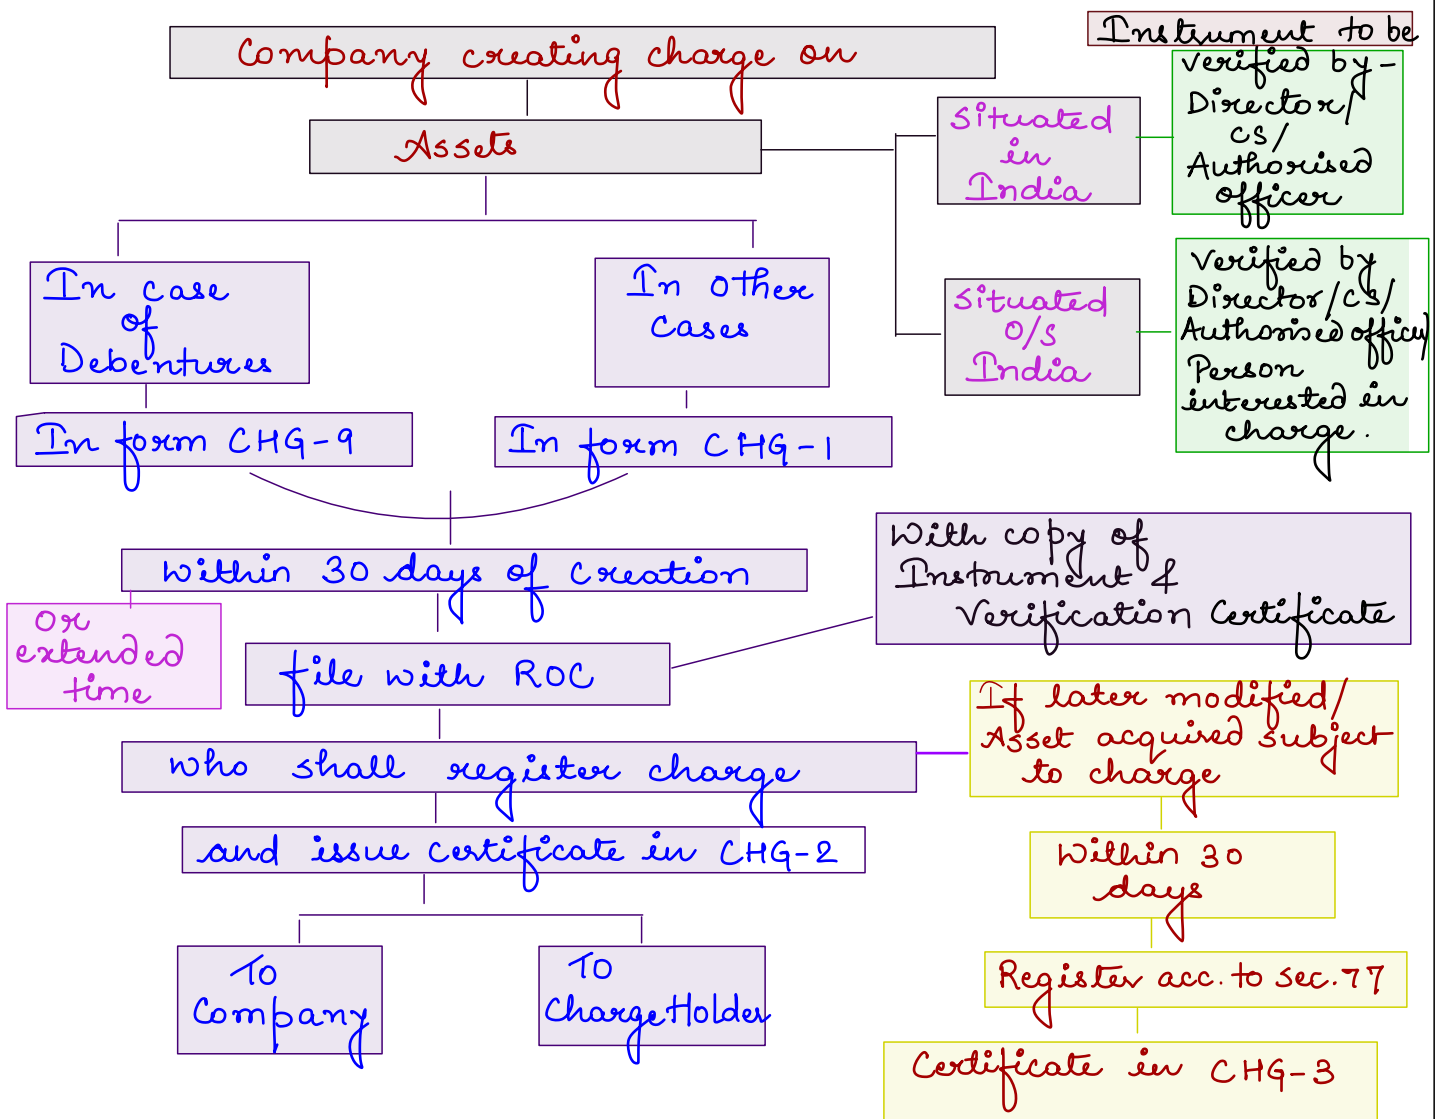 Company creating charge on
Assets
Instrument to be
verified by -
Director/
CS/
Authorised
officer
Situated
in
India
Situated
O/S
India
Verified by
Director/CS/
Authorised officer/
Person
interested in
charge.
In case
of
Debentures
In other
cases
In form CHG-9
In form CHG-1
Within 30 days of creation
or
extended
time
file with ROC
With copy of
Instrument &
Verification Certificate
who shall register charge
If later modified/
Asset acquired subject
to charge
and issue certificate in CHG-2
Within 30
days
To
Company
To
ChargeHolder
Register acc. to sec. 77
Certificate in CHG-3